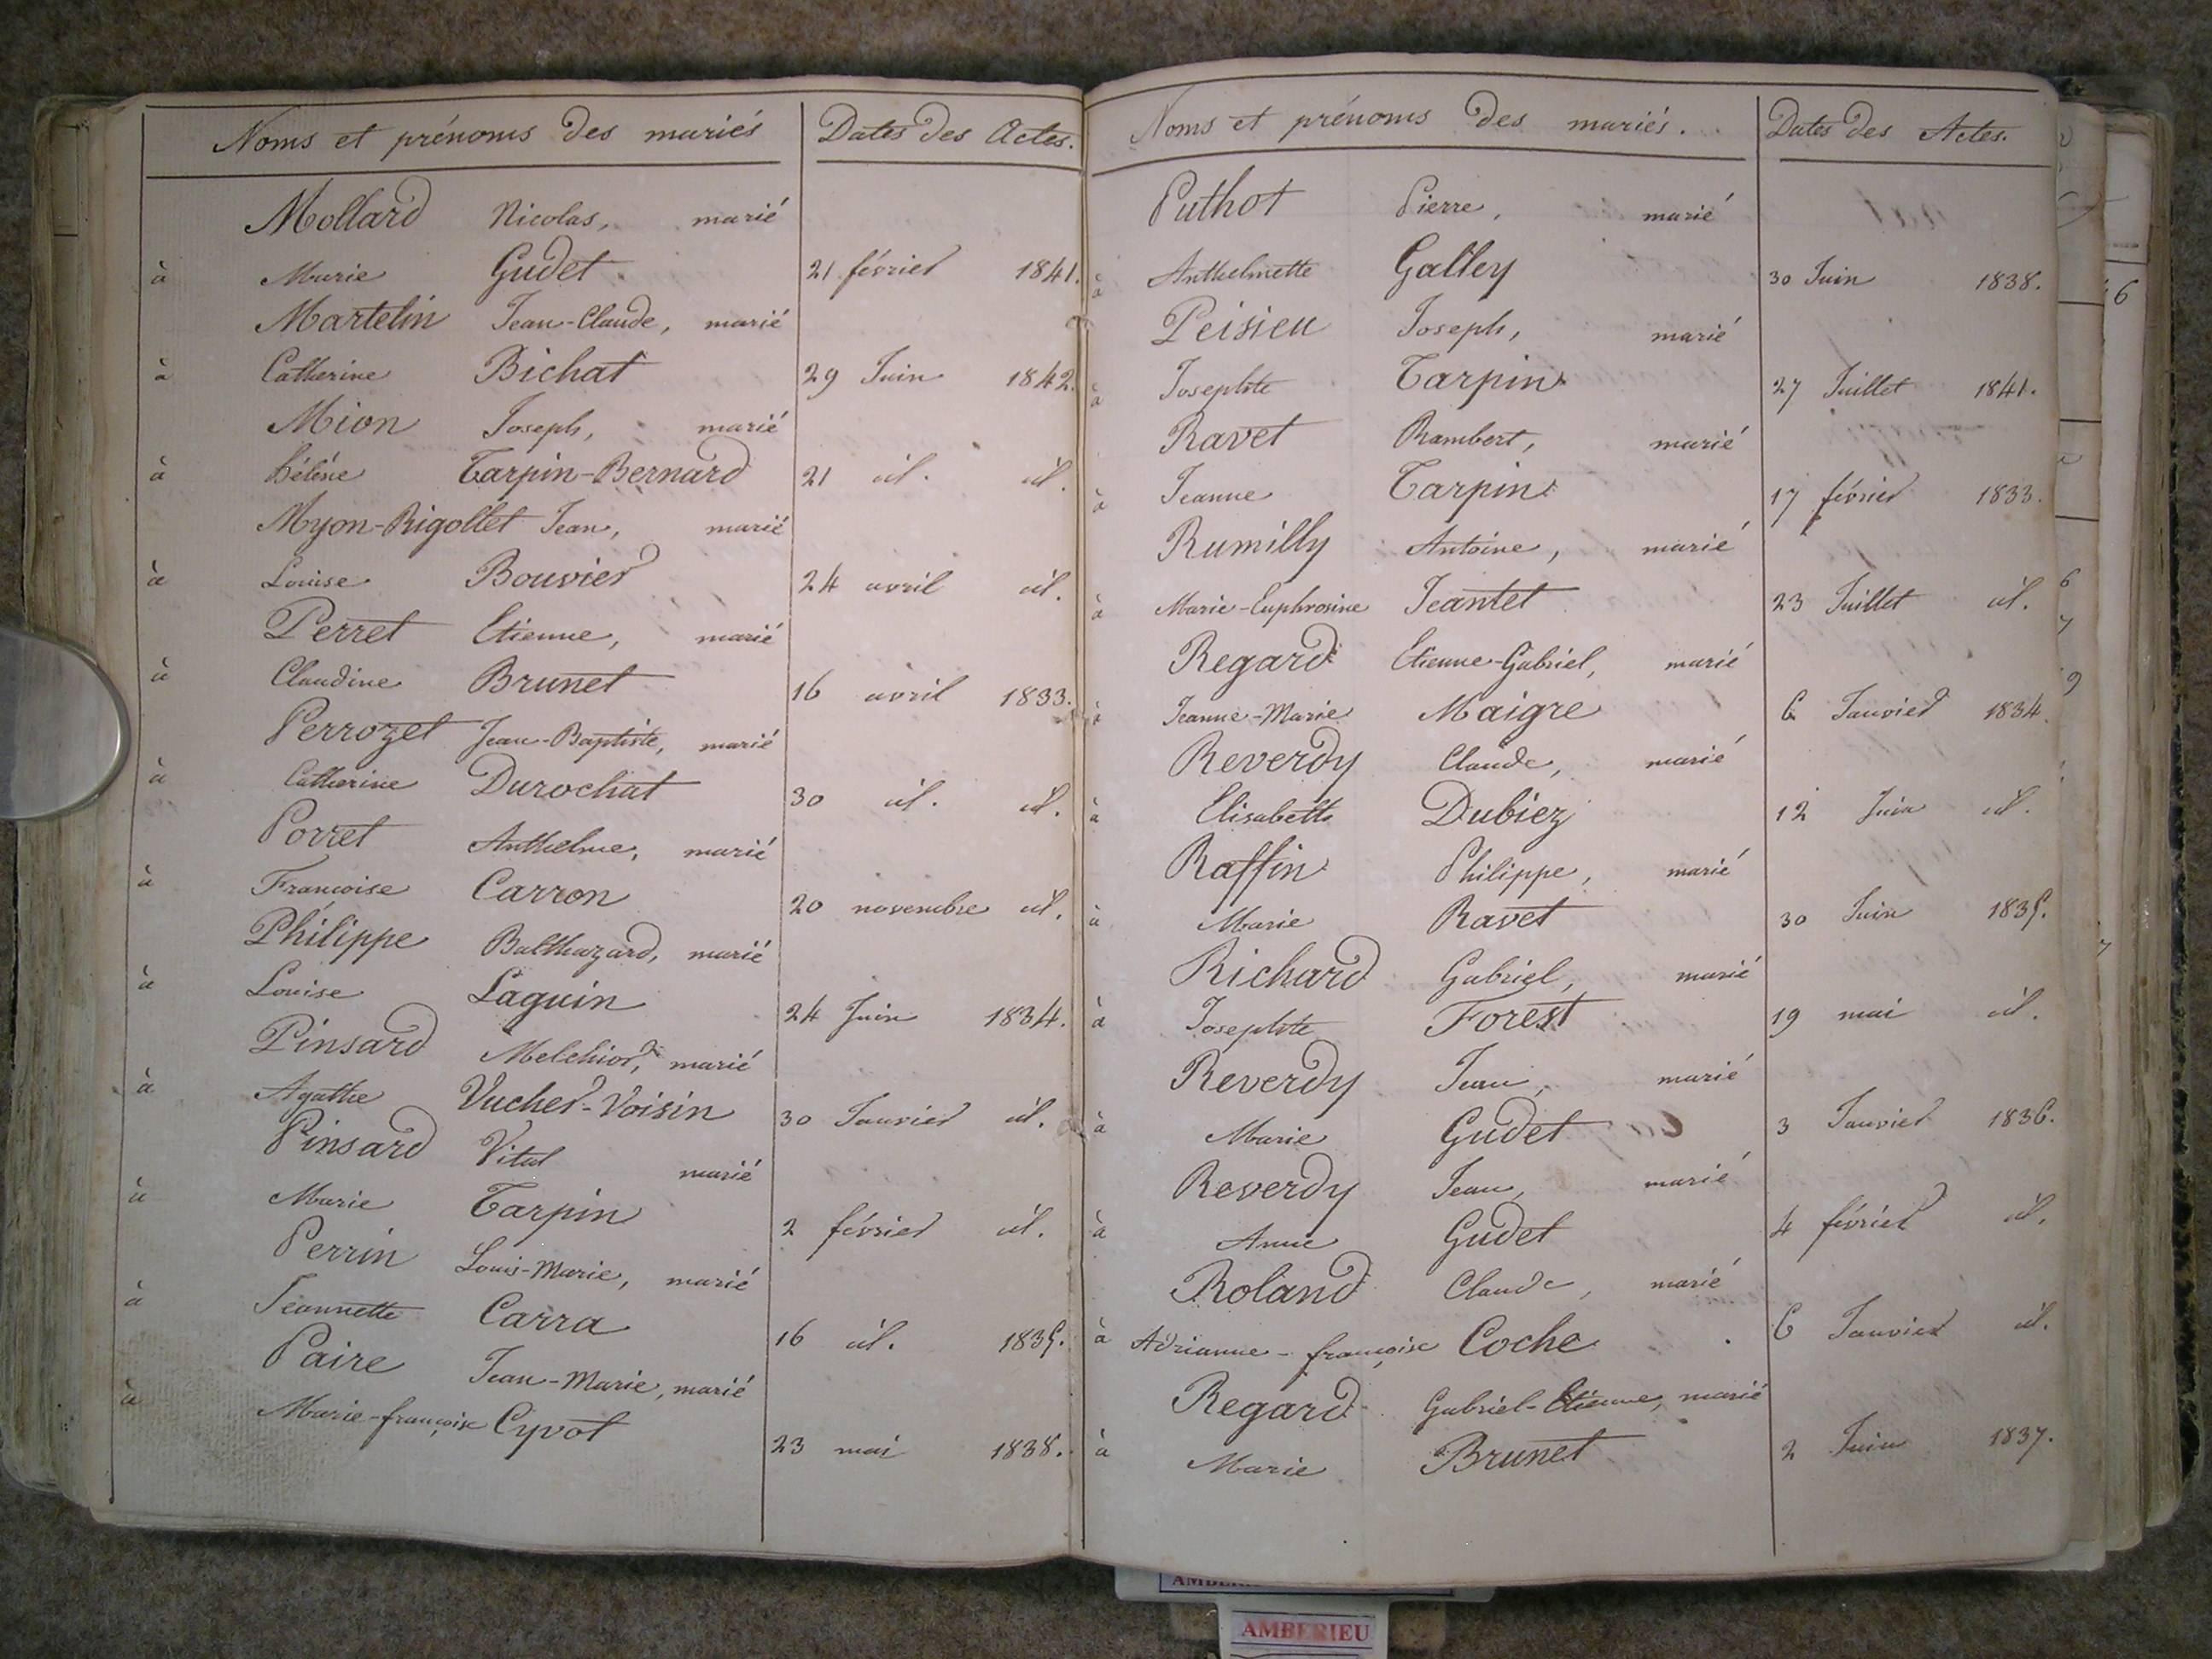 Noms et prénoms des mariés Dates des Actes.
Mollard Nicolas, marié
à Marie Gudet 21 février 1841.
Martelin Jean-Claude, marié
à Catherine Bichat 29 Juin 1842.
Mion Joseph, marié
à hélène Tarpin-Bernard 21 id. id.
Myon-Rigollet Jean, marié
à Louise Bouvier 24 avril id.
Perret Etienne, marié
à Claudine Brunet 16 avril 1833.
Perrozet Jean-Baptiste, marié
à Catherine Durochat 30 id. id.
Porret Anthelme, marié
à Françoise Carron 20 novembre id.
Philippe Balthazard, marié
à Louise Laguin 24 Juin 1834.
Pinsard Melchior, marié
à Agathe Vucher-Voisin 30 Janvier id.
Pinsard Vital marié
à Marie Tarpin 2 février id.
Perrin Louis-Marie, marié
à Jeannette Carra 16 id. 1835.
Paire Jean-Marie, marié
à Marie-françoise Cyvot 23 mai 1838.
Noms et prénoms des mariés. Dates des Actes.
Puthot Pierre, marié
à Anthelmette Galley 30 Juin 1838.
Peisieu Joseph, marié
à Josephte Tarpin 27 Juillet 1841.
Ravet Rambert, marié
à Jeanne Tarpin 17 février 1833.
Rumilly Antoine, marié
à Marie-Euphrosine Jeantet 23 Juillet id.
Regard Etienne-Gabriel, marié
à Jeanne-Marie Maigre 6 Janvier 1834.
Reverdy Claude, marié
à Elisabeth Dubiez 12 Juin id.
Raffin Philippe, marié
à Marie Ravet 30 Juin 1835.
Richard Gabriel, marié
à Josephte Forest 19 mai id.
Reverdy Jean, marié
à Marie Gudet 3 Janvier 1836.
Reverdy Jean, marié
à Anne Gudet 4 février id.
Roland Claude, marié
à Adrianne-françoise Coche 6 Janvier id.
Regard Gabriel-Etienne, marié
à Marie Brunet 2 Juin 1837.
AMBERIEU